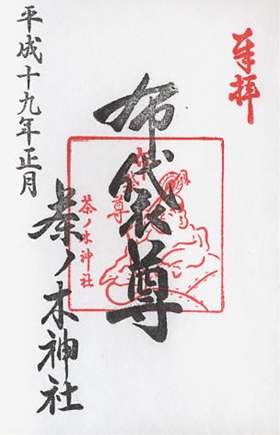 奉拝
布袋尊
布袋尊
茶ノ木神社
茶ノ木神社
平成十九年正月